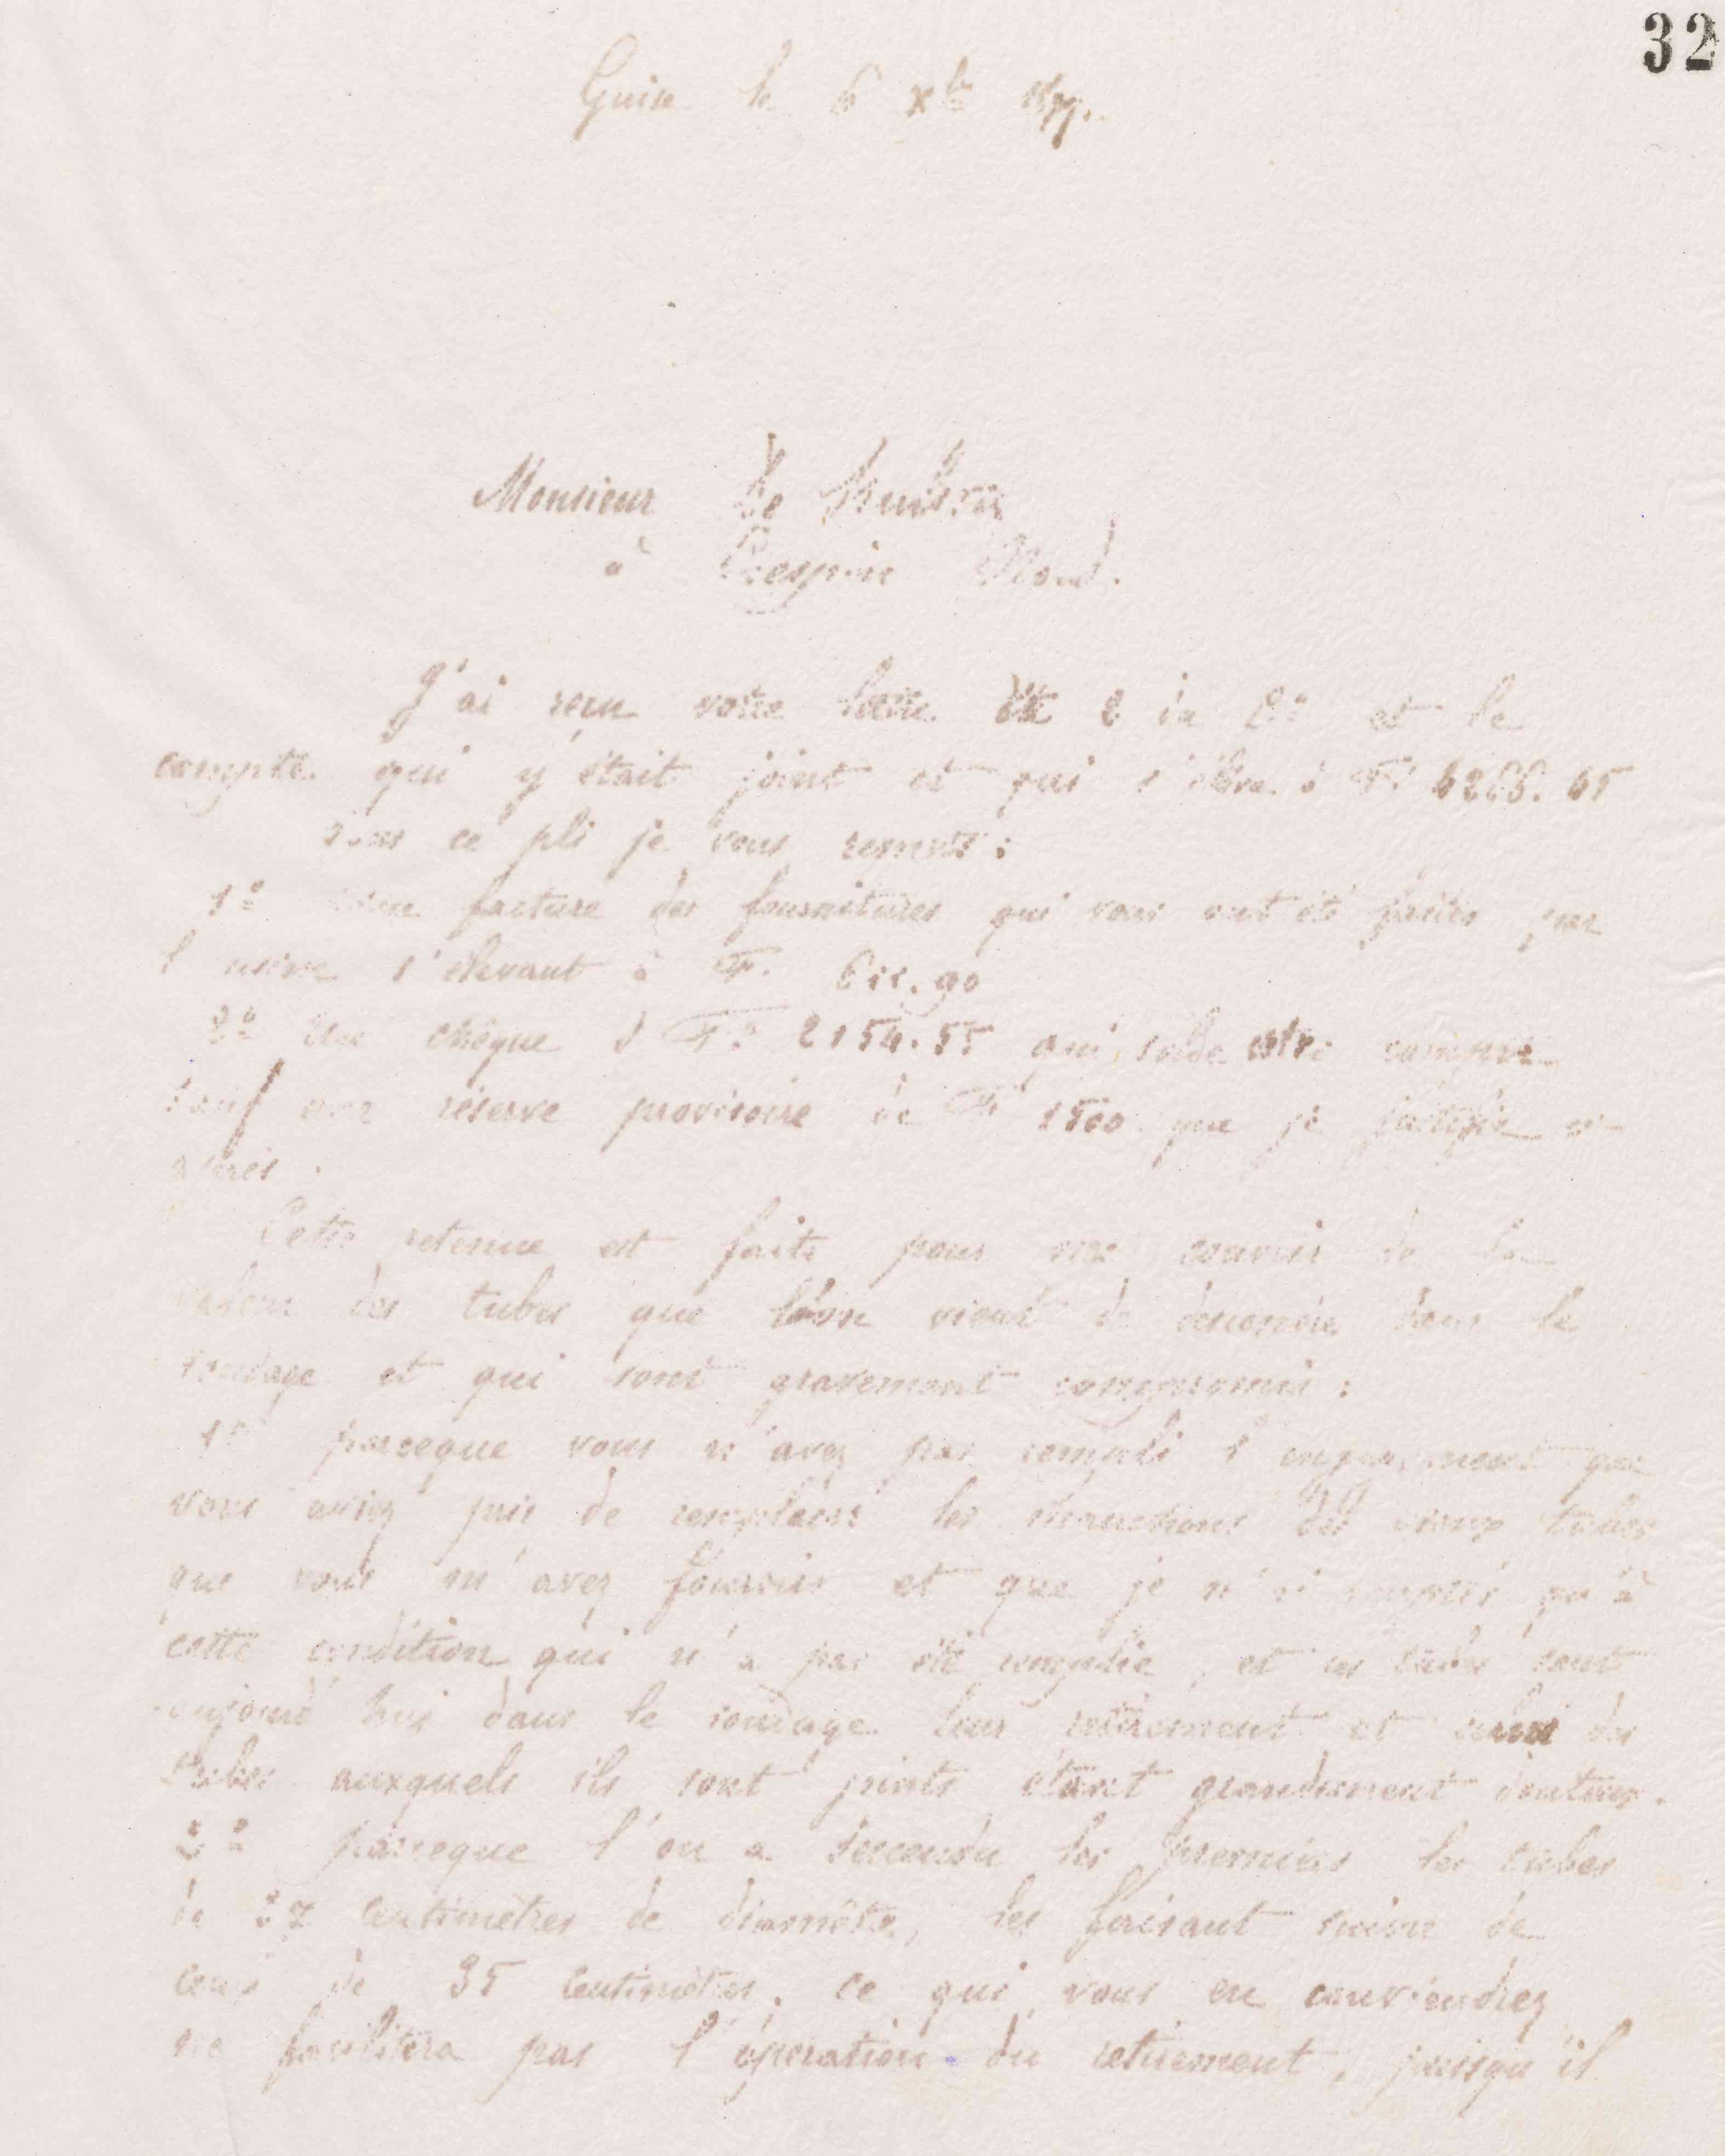 32
Guise le 6 xbre 1877.
Monsieur De
à Crespin Nord.
J'ai reçu votre lettre 2 et le
compte qui y était joint et qui s'élève à F.
sous ce pli je vous remets :
1º facture des fournitures qui vous ont été faites par
l'usine s'élevant à F. .90
2º Un chèque d F. 2154.55 qui solde votre compte
sauf une réserve provisoire de F 1500 que je justifie ci-
après.
Cette retenue est faite pour me couvrir de la
valeur des tubes que l'on vient de descendre dans le
sondage et qui sont gravement compromis :
1º parceque vous n'avez pas rempli l'engagement que
vous aviez pris de remplacer les manchons des vieux tubes
que vous m'avez fournis et que je n'ai acceptés qu'à
cette condition qui n'a pas été remplie, et ces tubes sont
aujourd'hui dans le sondage leur retirement et celui des
tubes auxquels ils sont joints étant grandement douteux.
2º parceque l'on a descendu les premiers les tubes
de 27 centimètres de diamètre, les faisant suivre de
ceux de 35 centimètres, ce qui, vous en conviendrez
ne facilitera pas l'opération du retirement, puisqu'il